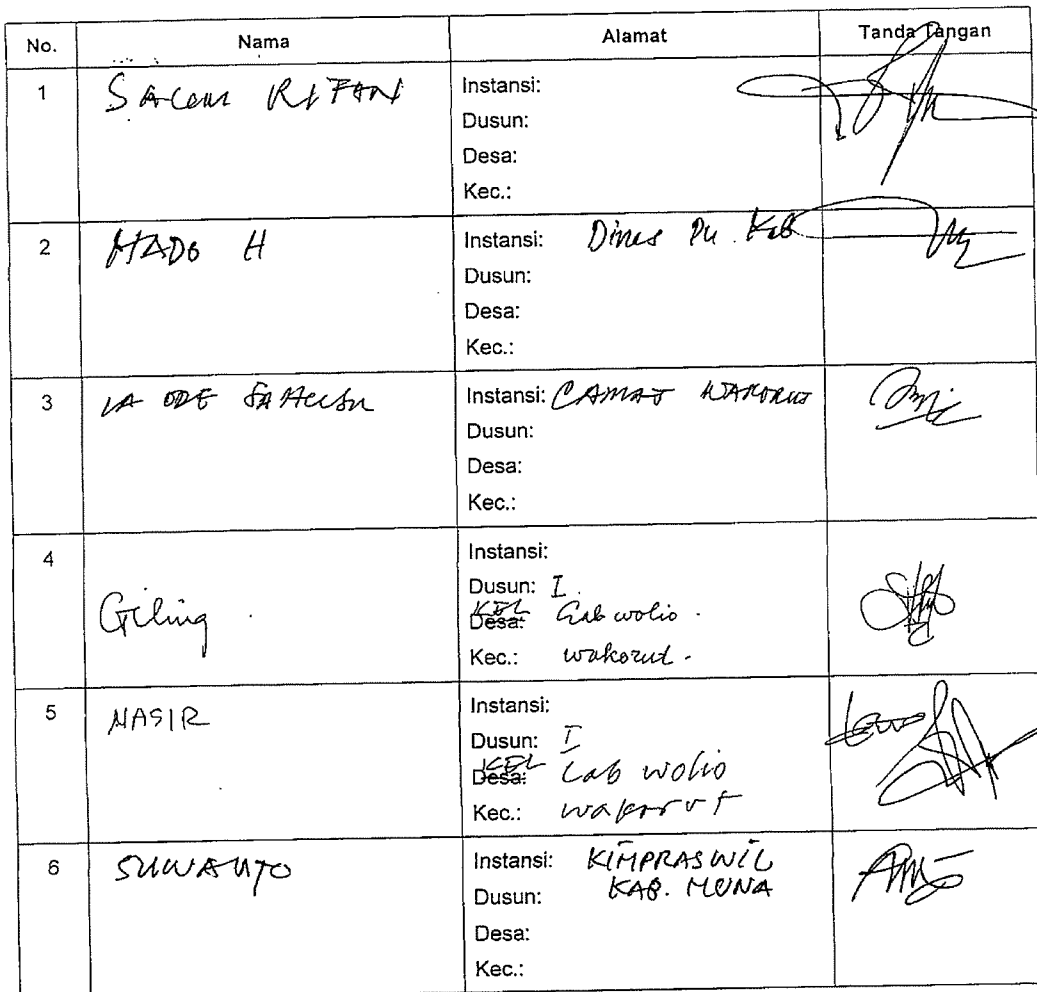 No. Nama Alamat Tanda Tangan
1 Instansi:
Dusun:
Desa:
Kec.:
2 MADO H Instansi: Dines Pu. Kab
Dusun:
Desa:
Kec.:
3 LA ODE Instansi: CAMAT WAKORUT
Dusun:
Desa:
Kec.:
4 Giling Instansi:
Dusun: I
KEL Desa: Lab wolio
Kec.: wakorut
5 NASIR Instansi:
Dusun: I
KEL Desa: Lab wolio
Kec.: wakorut
6 SUWANTO Instansi: KIMPRASWIL
Dusun: KAB. MUNA
Desa:
Kec.: